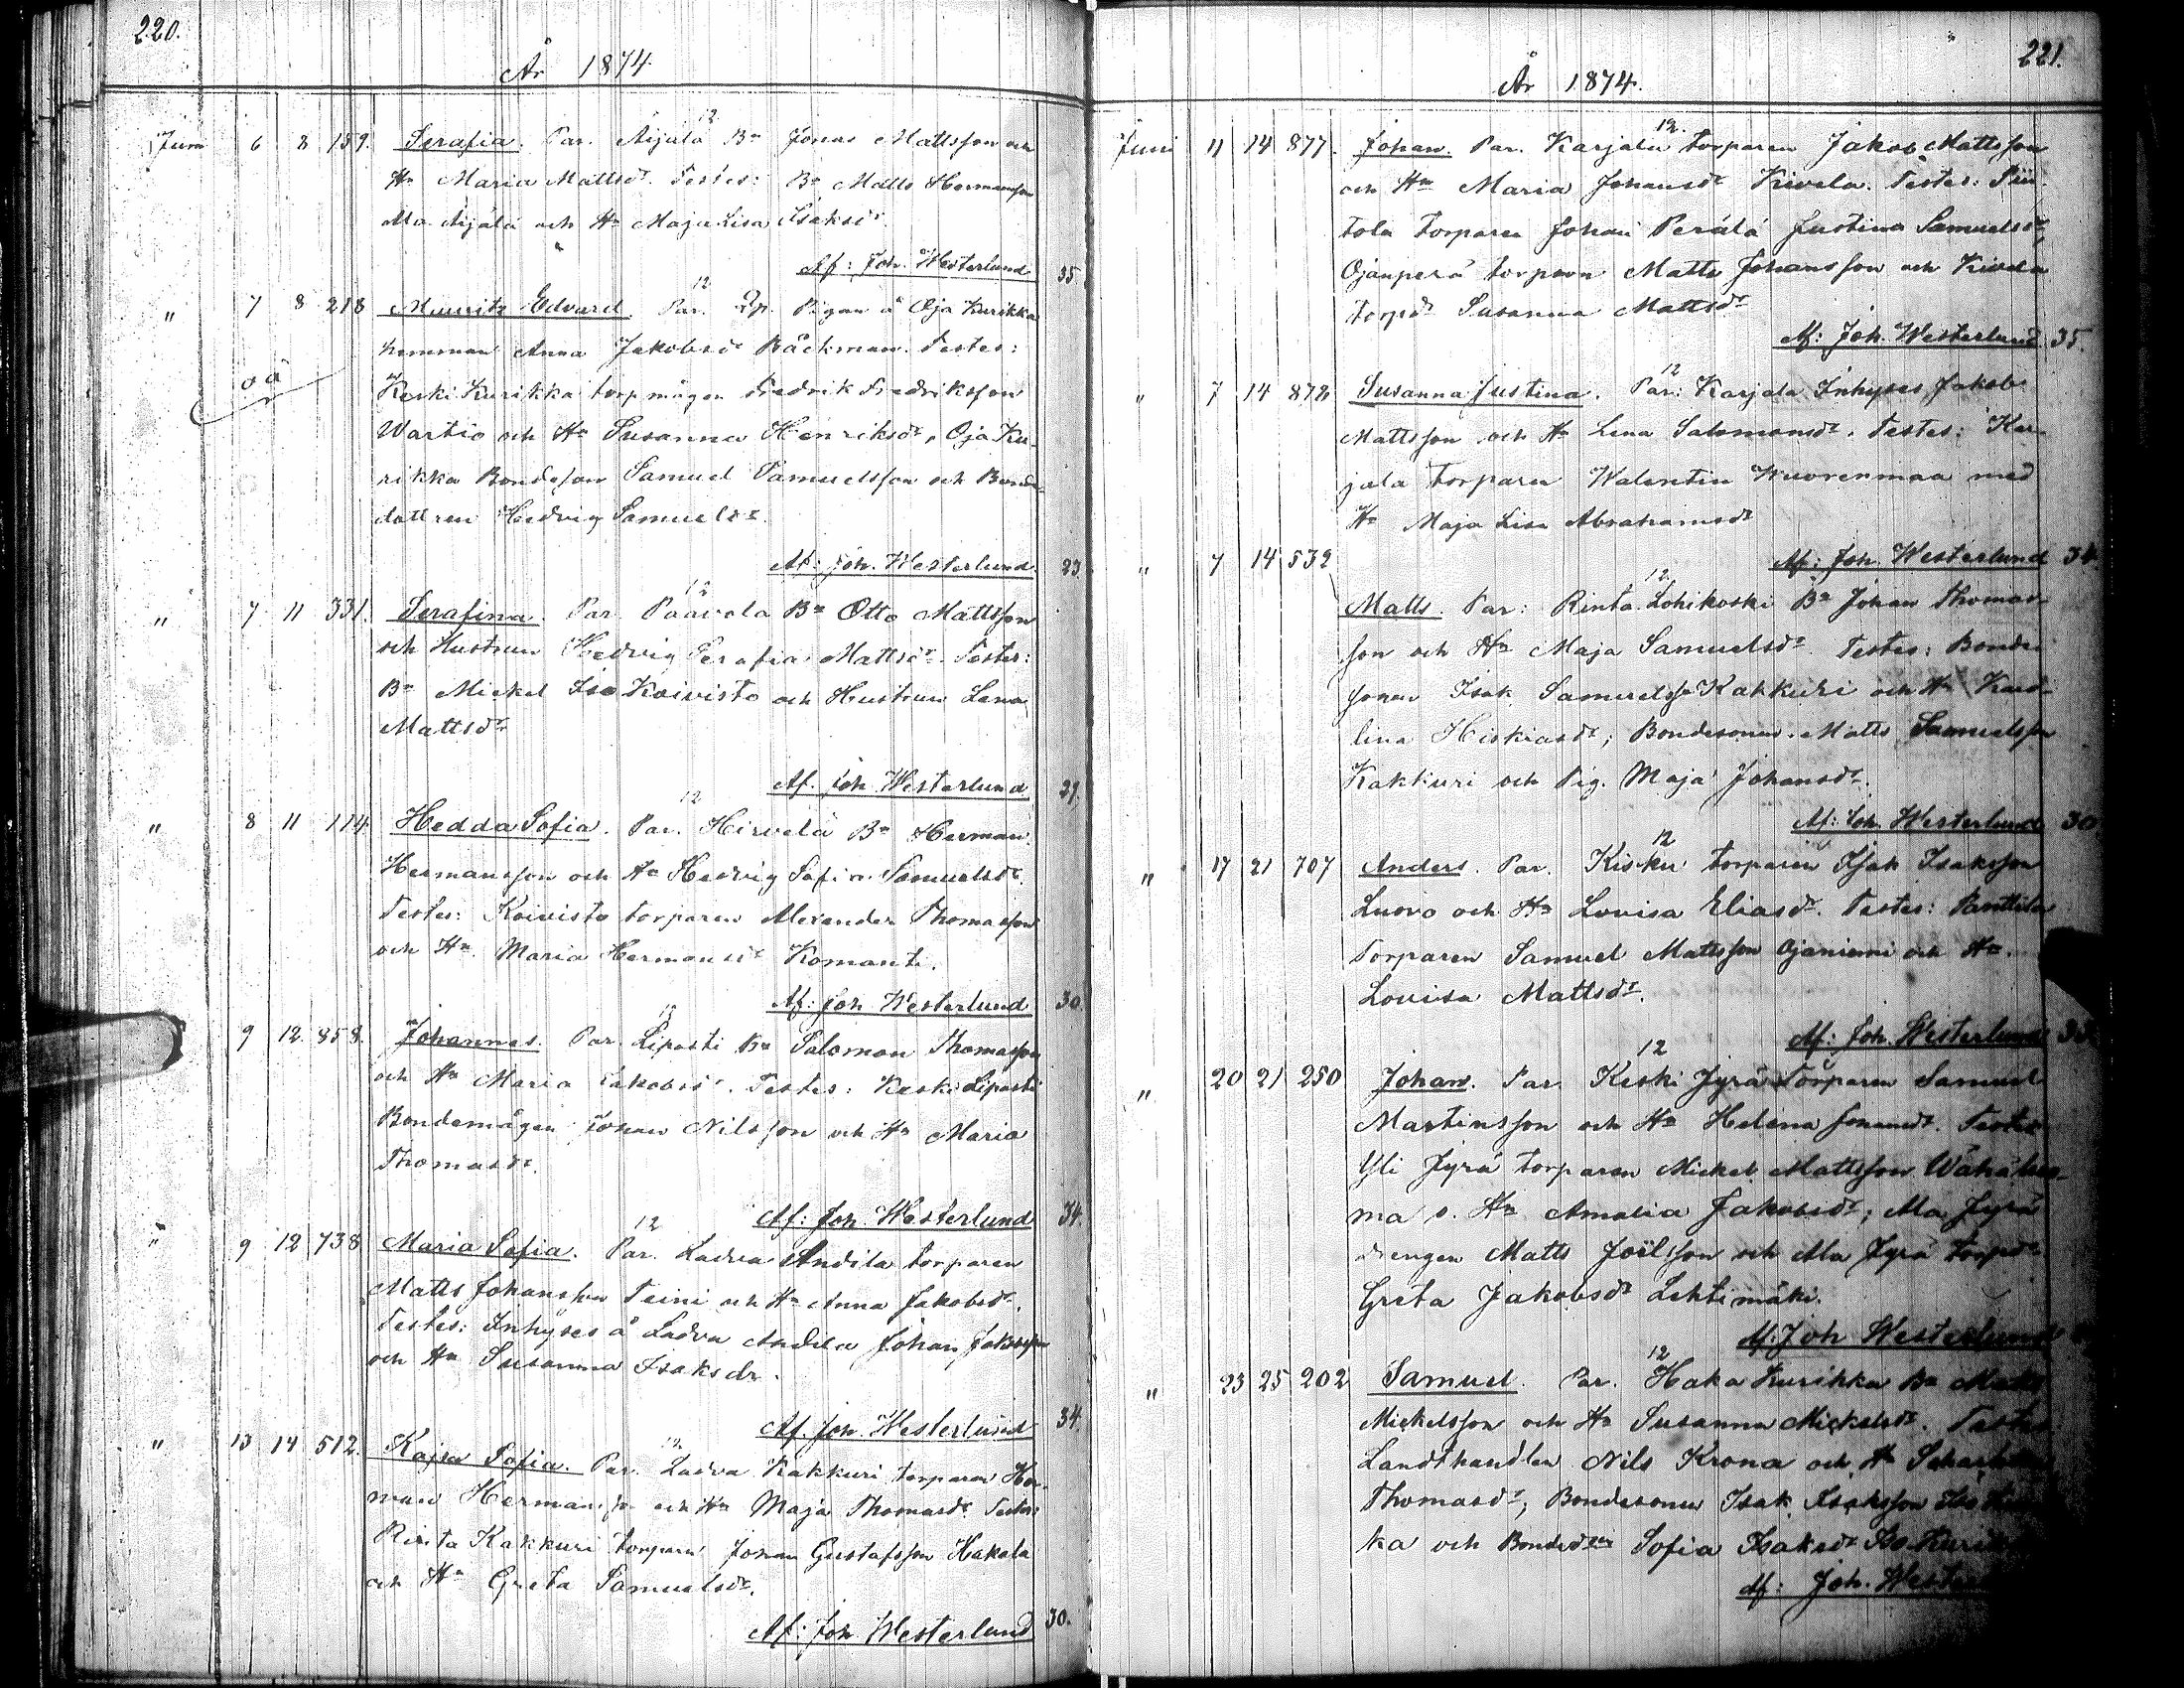 220.
År 1874.
12
Juni 6 8 159. Serafia. Par. Äijälä Bn Jonas Mattsson och
Hn Maria Mattsdr. Testes: Bn Matts Hermansson
Ala Äijälä och Hn Maja Lisa Isaksdr.
Af: Joh. Westerlund 35.
12
" 7 8 218 Mauritz Edvard. Par. Pigan å Oja Kurikka
hemman Anna Jakobsdr Bäckman. Testes:
oä
Keski Kurikka torpmågen Fredrik Fredriksson
Wartio och Hn Susanna Henriksdr, Oja Ku-
rikka Bondeson Samuel Samuelsson och Bonde-
dottren Hedvig Samuelsdr.
Af: Joh. Westerlund. 23.
12
" 7 11 331. Serafina. Par. Paavola Bn Otto Mattsson
och Hustrun Hedvig Serafia Mattsdr. Testes:
Bn Mickel Iso Koivisto och Hustrun Lena
Mattsdr
Af. Joh Westerlund 29.
12
" 8 11 114. Hedda Sofia. Par. Hirvelä Bn Herman
Hermansson och Hn Hedvig Sofia Samuelsdr.
Testes: Koivisto torparen Alexander Thomasson
och Hn. Maria Hermansdr Komanti.
Af: Joh Westerlund 30.
12
9 12. 858. Johannes. Par. Liposti Bn Salomon Thomasson
och Hn Maria Jakobsdr. Testes: Keski Liposti
Bondemågen Johan Nilsson och Hn Maria
Thomasdr.
Af: Joh Westerlund 34.
12
" 9 12 738 Maria Sofia. Par. Ladva Andila torparen
Matts Johansson Teini och Hn Anna Jakobsdr.
Testes: Inhyses å Ladva Andila Johan Jakobsson
och Hn Susanna Isaksdr.
Af. Joh Westerlund 34.
12
" 13 14 512. Kajsa Sofia. Par. Ladva Kakkuri torparen Her-
man Hermansson och Hn Maja Thomasdr. Testes:
Rinta Kakkuri torparen Johan Gustafsson Hakala
och Hn Greta Samuelsdr.
Af: Joh Westerlund 30.
221.
År 1874.
12.
Juni 11 14 877. Johan. Par. Karjala torparen Jakob Mattsson
och Hn Maria Johansdr Kivela. Testes: Pii-
tola torparen Johan Perälä Justina Samuelsdr,
Ojanperä torparen Matts Johansson och Kivela
torpdr Susanna Mattsdr
Af: Joh. Westerlund 35.
12
" 7 14 872 Susanna Justina. Par: Karjala Inhyses Jakob
Mattsson och Hn Lena Salomonsdr. Testes: Kar-
jala torparen Walentin Wuorenmaa med
Hn Maja Lisa Abrahamsdr
Af: Joh. Westerlund 34.
" 7 14 532
12
Matts. Par: Rinta Lohikoski Bn Johan Thomas-
son och Hn Maja Samuelsdr. Testes: Bonde
sonen Isak Samuelsson Kakkuri och Hn Karo-
lina Hiskiasdr; Bondesonen Matts Samuelsson
Kakkuri och Pig. Maja Johansdr.
Af: Joh. Westerlund 30
12
" 17 21 707 Anders. Par. Kisku torparen Isak Isaksson
Luovo och Hn Lovisa Eliasdr. Testes: Panttila
Torparen Samuel Mattsson Ojaniemi och Hn.
Lovisa Mattsdr.
Af: Joh. Westerlund
12
" 20 21 250 Johan. Par. Keski Jyrä Torparen Samuel
Martinsson och Hn Helena Jonasdr. Testes
Yli Jyrä torparen Mickel Mattsson Wähäluo-
ma o. Hn Amalia Jakobsdr; Ala Jyrä
drengen Matts Joelsson och Ala Jyrä torpdr
Greta Jakobsdr Lehtimäki.
Af: Joh Westerlund
12
" 23 25 202 Samuel. Par. Haka Kurikka Bn Matts
Mickelsson och Hn Susanna Mickelsdr. Testes
Landthandlen Nils Krona och Hn
Thomasdr; Bondesonen Isak Isaksson Iso
ka och Bondedrn Sofia Isaksdr Iso Kurik
Af: Joh. Wester